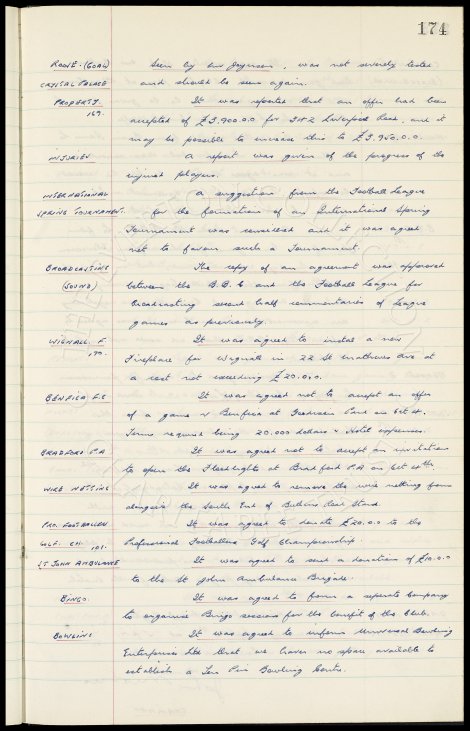 174
ROUSE. (GOAL) Seen by Mr Jaynson, was not severely tested
CRYSTAL PALACE and should be seen again.
PROPERTY It was reported that an offer had been
169. accepted of £3,900.0.0 for Liverpool Road, and it
may be possible to increase this to £3,950.0.0.
INJURIES A report was given of the progress of the
injured players.
INTERNATIONAL A suggestion from the Football League
SPRING TOURNAMENT. for the formation of an International Spring
Tournament was considered and it was agreed
not to favour such a Tournament.
BROADCASTING The copy of an agreement was approved
(SOUND) between the B.B.C and the Football League for
Broadcasting second half commentaries of League
games as previously.
WIGNALL. F. It was agreed to instal a new
170. Fireplace for Wignall in 22 St Matthews Ave at
a cost not exceeding £20.0.0.
BENFICA F.C It was agreed not to accept an offer
of a game v Benfica at Goodison Park on Oct 4th.
Terms required being 20.000 dollars + Hotel expenses.
BRADFORD P.A It was agreed not to accept an invitation
to open the Floodlights at Bradford P.A on Oct 4th.
WIRE NETTING It was agreed to remove the wire netting from
alongside the South End of Bullens Road Stand.
PRO. FOOTBALLERS It was agreed to donate £20.0.0 to the
GOLF. CH. 101. Professional Footballers Golf Championship.
ST JOHN AMBULANCE It was agreed to send a donation of £10.0.0
to the St John Ambulance Brigade.
BINGO. It was agreed to form a separate Company
to organise Bingo sessions for the benefit of the Club.
BOWLING It was agreed to inform Universal Bowling
Enterprises Ltd that we have no space available to
establish a Ten Pin Bowling Centre.